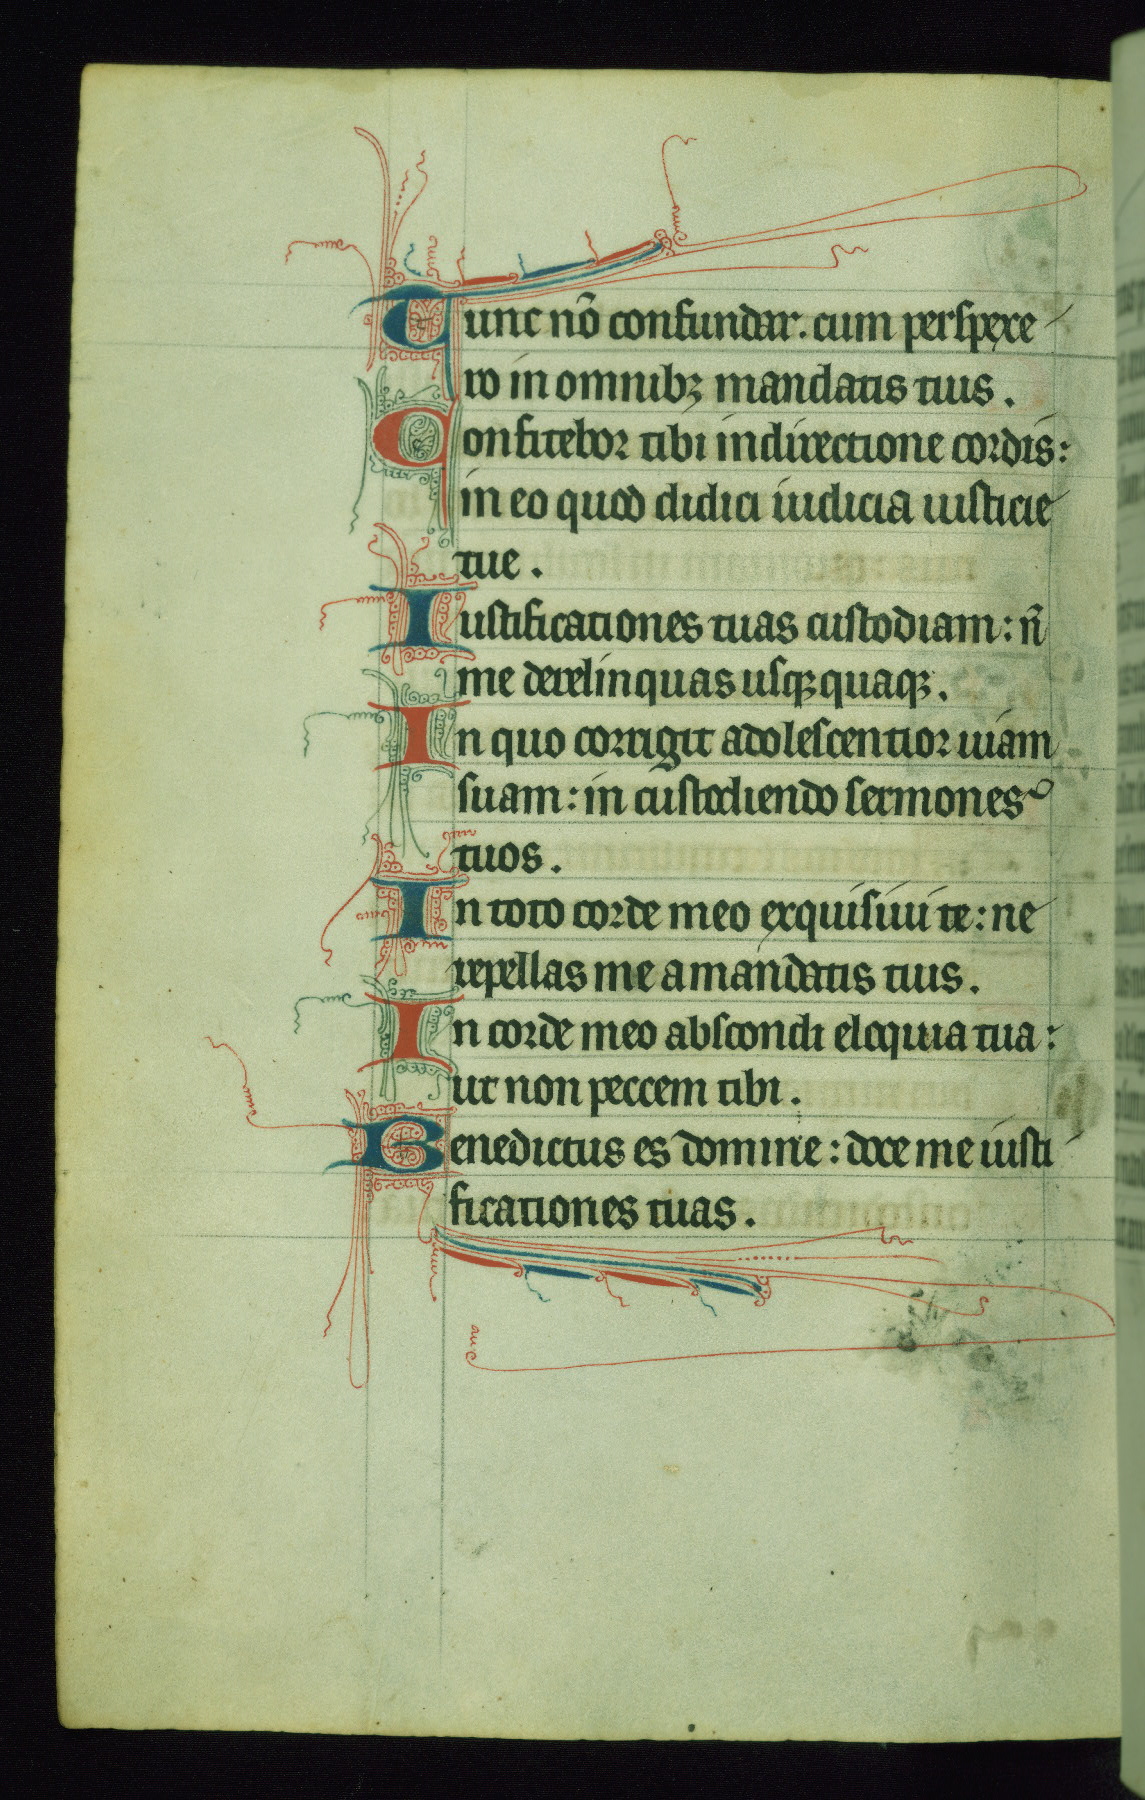 Tunc nõ confundar. cum perspexe
ro in omnibꝫ mandatis tuis.
Confitebor tibi in directione cordis:
in eo quod didici iudicia iusticie
tue.
Iustificationes tuas custodiam: ñ
me derelinquas usqꝫ quaqꝫ.
In quo corrigit adolescentior uiam
suam: in custodiendo sermones
tuos.
In toto corde meo exquisiui te: ne
repellas me a mandatis tuis.
In corde meo abscondi eloquia tua:
ut non peccem tibi.
Benedictus es domine: doce me iusti
ficationes tuas.